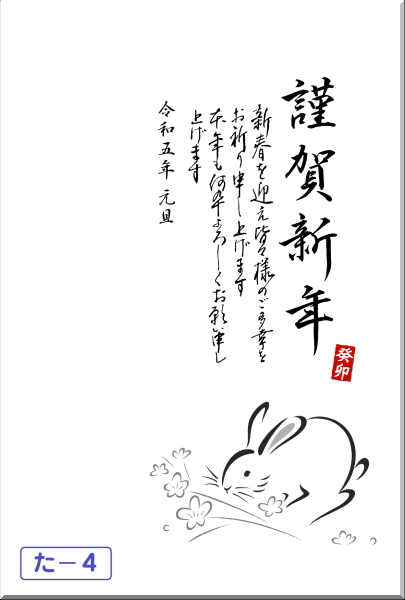 謹賀新年
新春を迎え皆々様のご多幸を
お祈り申し上げます
本年も何卒よろしくお願い申し
上げます
令和五年 元旦
癸卯
た－4